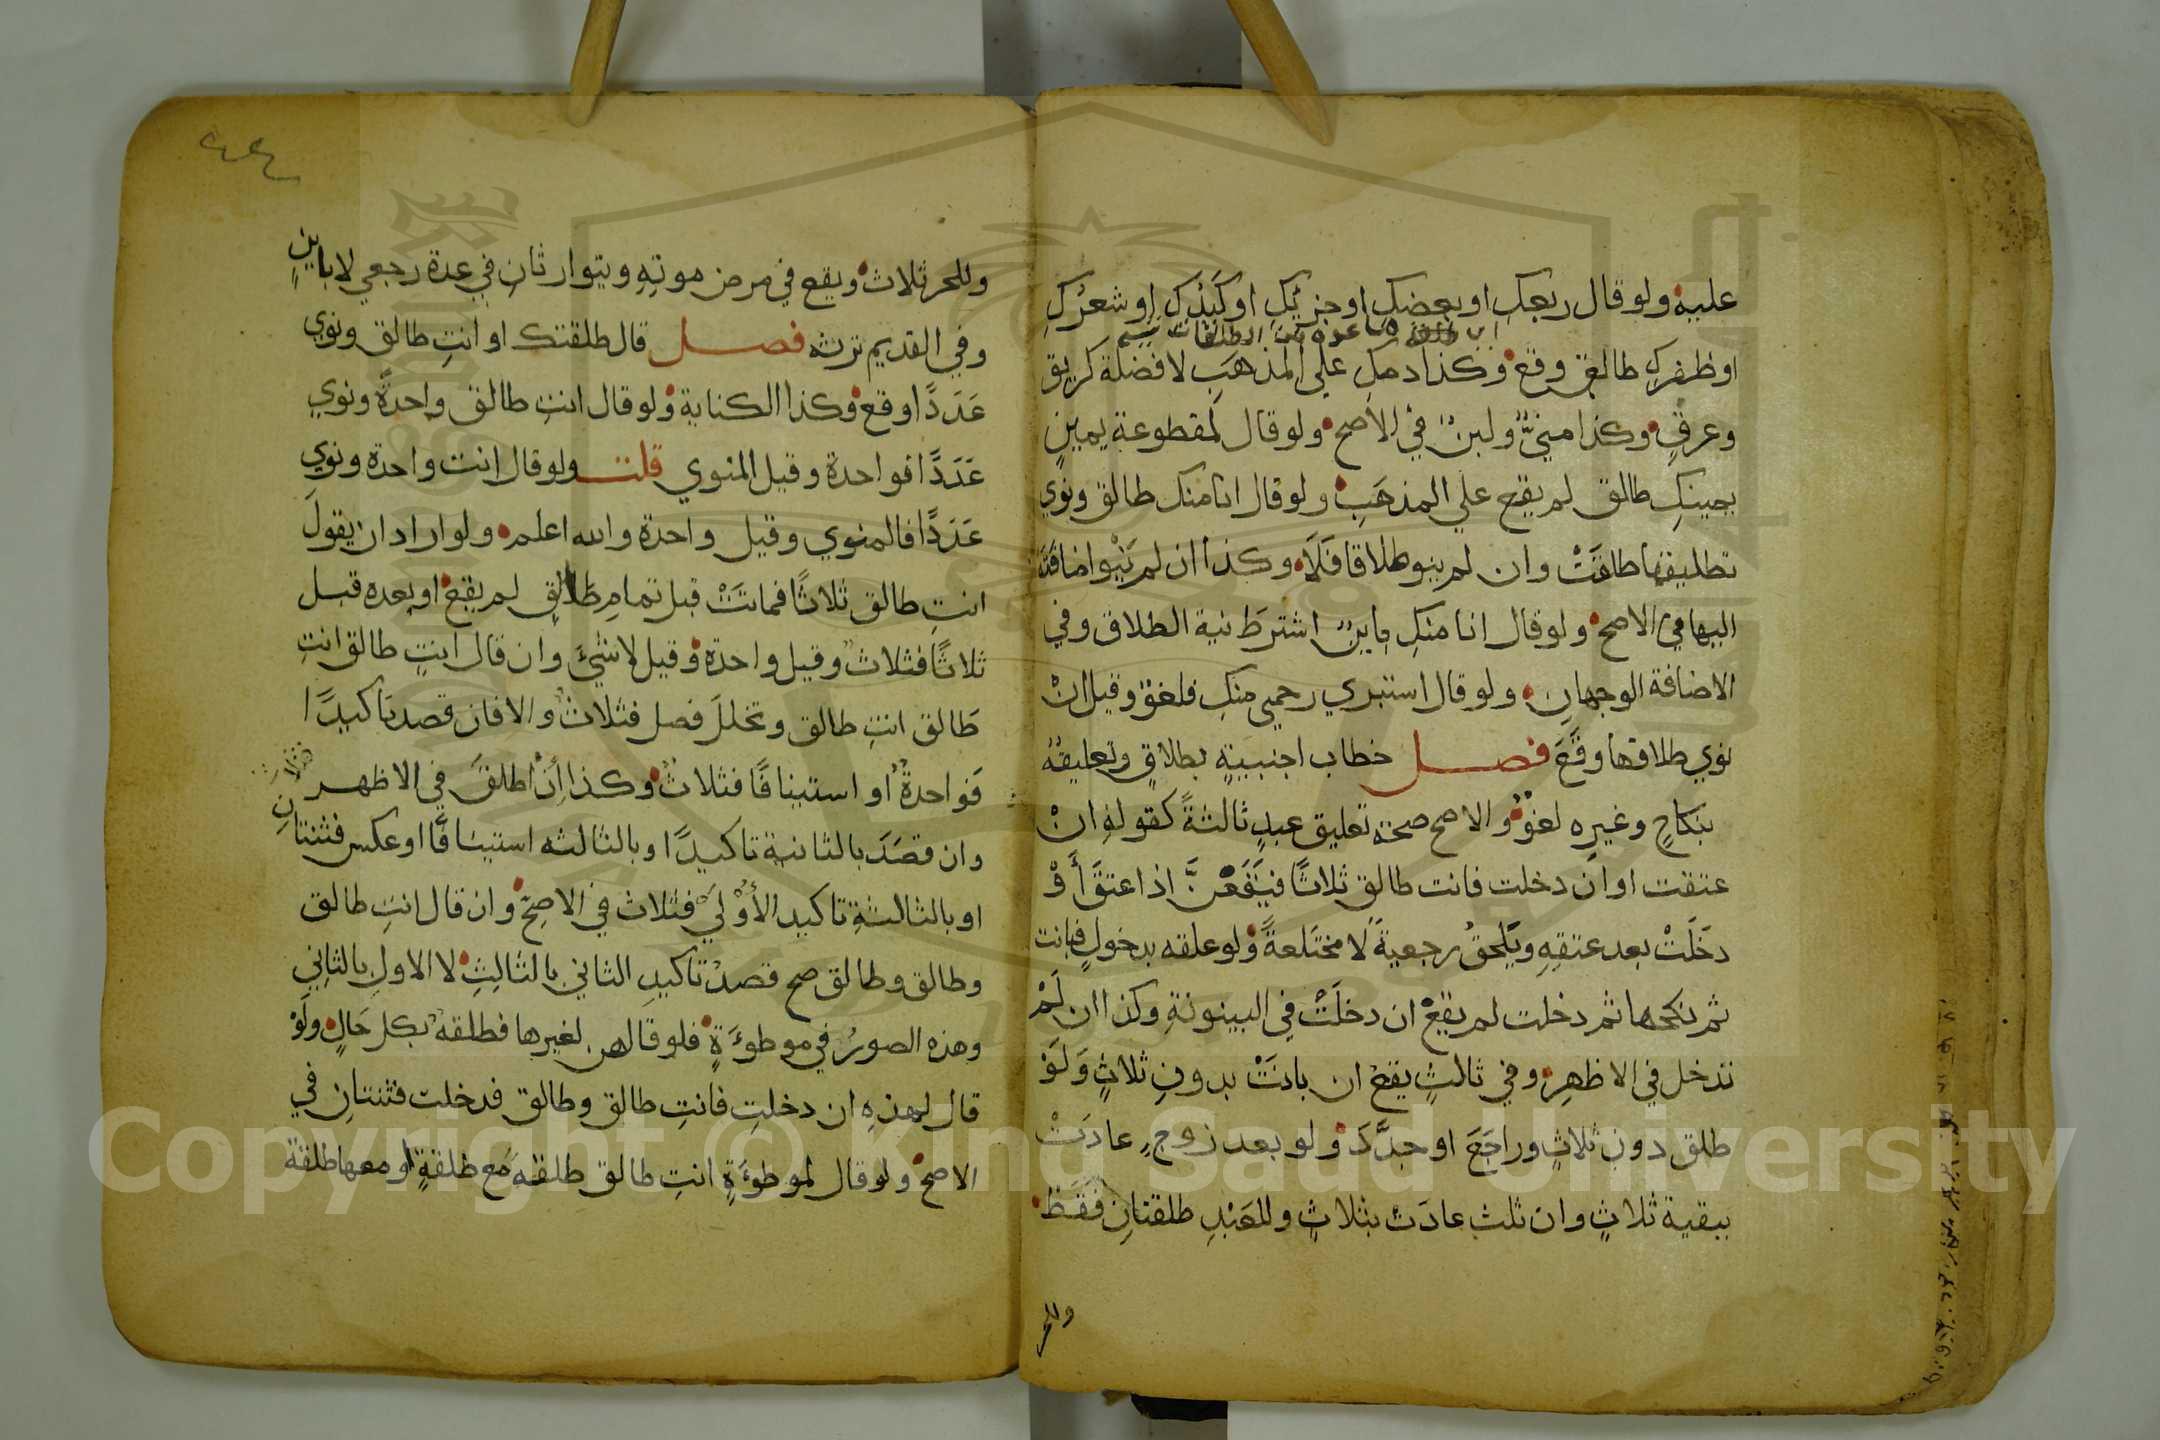 عليه ولو قال ربعك او بعضك او جزئك او كبدك او شعرك
او ظفرك طالق وقع وكذا دمك علي المذهب لا فضلة كريق
وعرق وكذا مني ولبن في الاصح ولو قال لمقطوعة يمين
يمينك طالق لم يقع علي المذهب ولو قال انا منك طالق ونوي
تطليقها طلقت وان لم ينو طلاقا فلا وكذا ان لم ينوا اضافته
اليها في الاصح ولو قال انا منك باين اشترط نية الطلاق وفي
الاضافة الوجهان ولو قال استبري رحمي منك فلغو وقيل ان
نوي طلاقها وقع فصل خطاب اجنبية بطلاق وتعليقه
بنكاح وغيره لغو والاصح صحة تعليق عبد ثالثة كقوله ان
عتقت او ان دخلت فانت طالق ثلاثا فيقعن اذا عتق أو
دخلت بعد عتقه ويلحق رجعية لا مختلعة ولو علقه بدخول فبانت
ثم نكحها ثم دخلت لم يقع ان دخلت في البينونة وكذا ان لم
تدخل في الاظهر وفي ثالث يقع ان بانت بدون ثلاث ولو
طلق دون ثلاث وراجع او جدد ولو بعد زوج عادت
ببقية ثلاث وان ثلث عادت بثلاث وللعبد طلقتان فقط
وللحر
وللحر ثلاث ويقع في مرض موته ويتوارثان في عدة رجعي لا باين
وفي القديم ترثه فصل قال طلقتك او انت طالق ونوي
عددا وقع وكذا الكناية ولو قال انت طالق واحدة ونوي
عددا فواحدة وقيل المنوي قلت ولو قال انت واحدة ونوي
عددا فالمنوي وقيل واحدة والله اعلم ولو اراد ان يقول
انت طالق ثلاثا فماتت قبل تمام طالق لم يقع او بعده قبل
ثلاثا فثلاث وقيل واحدة وقيل لا شئ وان قال انت طالق انت
طالق انت طالق وتخلل فصل فثلاث والا فان قصد تاكيدا
فواحدة او استينافا فثلاث وكذا ان اطلق في الاظهر
وان قصد بالثانية تاكيدا وبالثالثه استينافا او عكس فثنتان
او بالثالثة تاكيد الأولي فثلاث في الاصح وان قال انت طالق
وطالق وطالق صح قصد تاكيد الثاني بالثالث لا الاول بالثاني
وهذه الصور في موطوءة فلو قالهن لغيرها فطلقة بكل حال ولو
قال لهذه ان دخلت فانت طالق وطالق فدخلت فثنتان في
الاصح ولو قال لموطوءة انت طالق طلقة مع طلقة او معها طلقة
Copyright © King Saud University